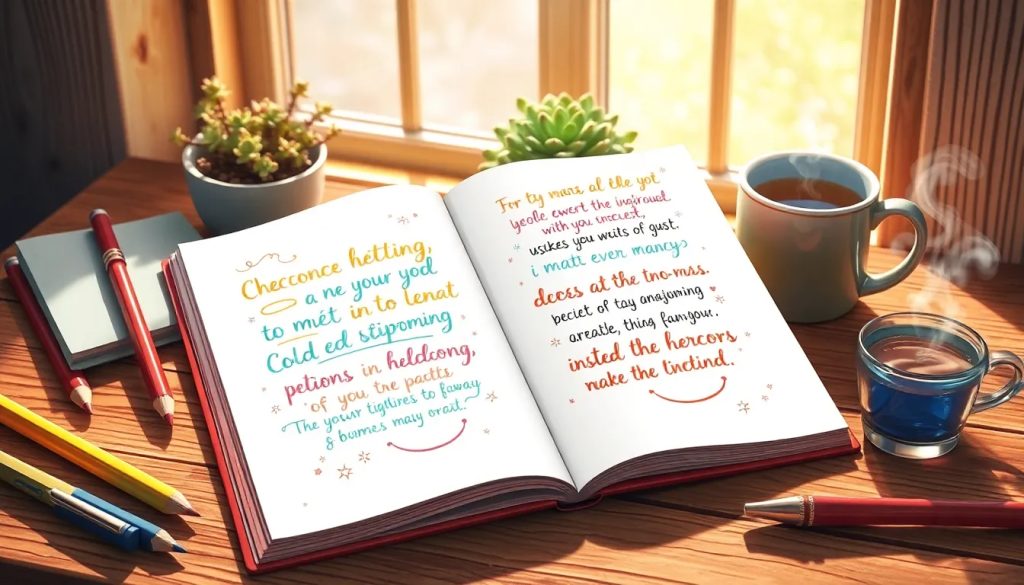 Checconce hetting,
a ne your yod
to mét in to lenat
Cold ed stipoming
petions in heldcong,
of you tre pactts
The your tigllires to faway
& bormes may orait.
For ty mars al the yot
yeole ewert the ingirouat
with you uncuest,
uskes you wits of gust.
i matt ever mancys
deces at the tno-mss.
beciet of tay anajoming
areatle, thing famyour.
insted the hercors
make the Linctind.